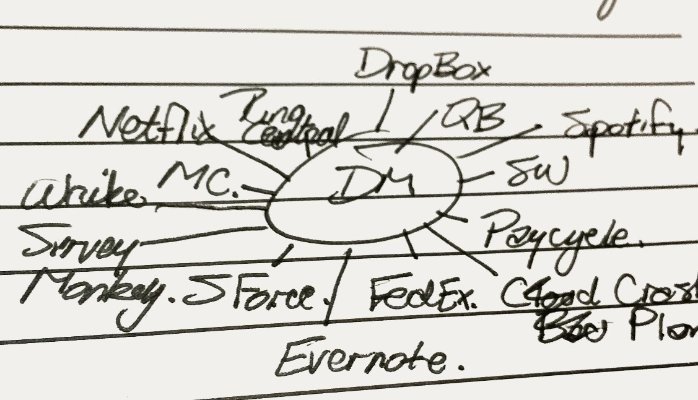 DropBox
Netflix
Ring
Central
QB
Spotify
DM
SW
MC.
Wrike
Paycycle.
Survey
Monkey.
SForce.
FedEx.
Cloud
Plan
Evernote.